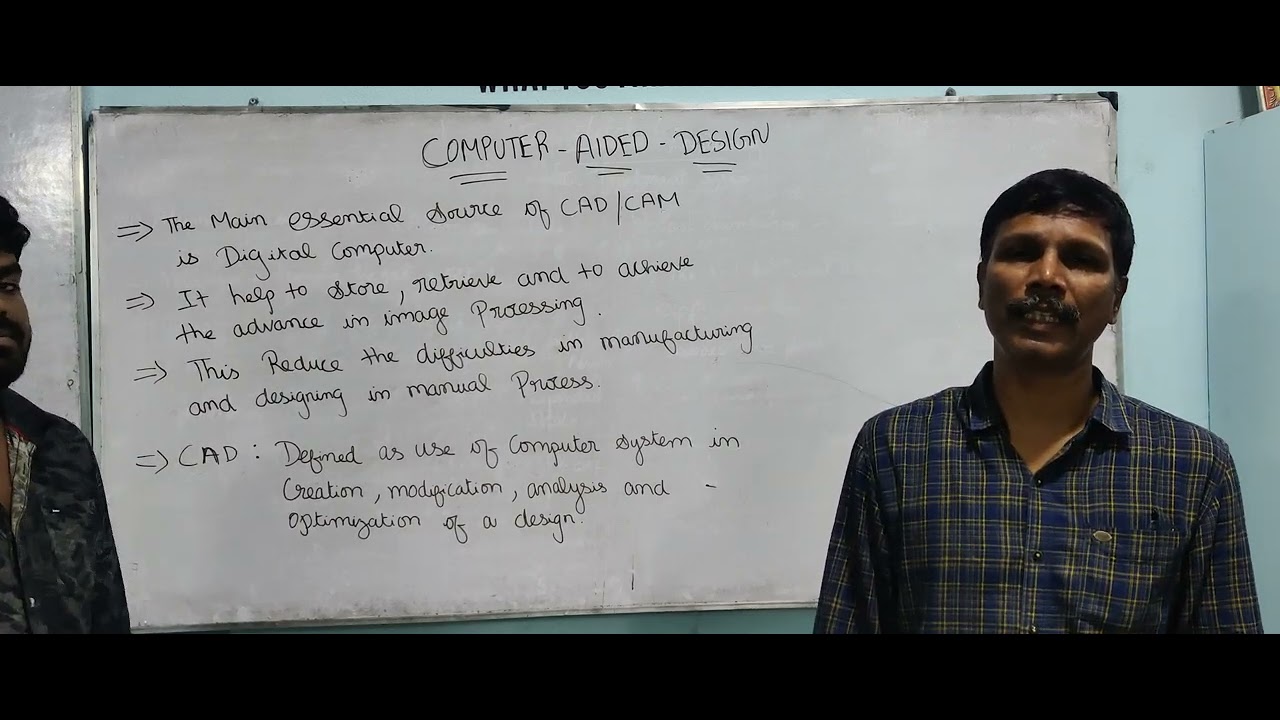 COMPUTER - AIDED - DESIGN
⇒ The Main essential source of CAD/CAM
is Digital Computer.
⇒ It help to store, retrieve and to achieve
the advance in image Processing.
⇒ This Reduce the difficulties in manufacturing
and designing in manual Process.
⇒ CAD : Defined as use of Computer system in
Creation, modification, analysis and -
Optimization of a design.